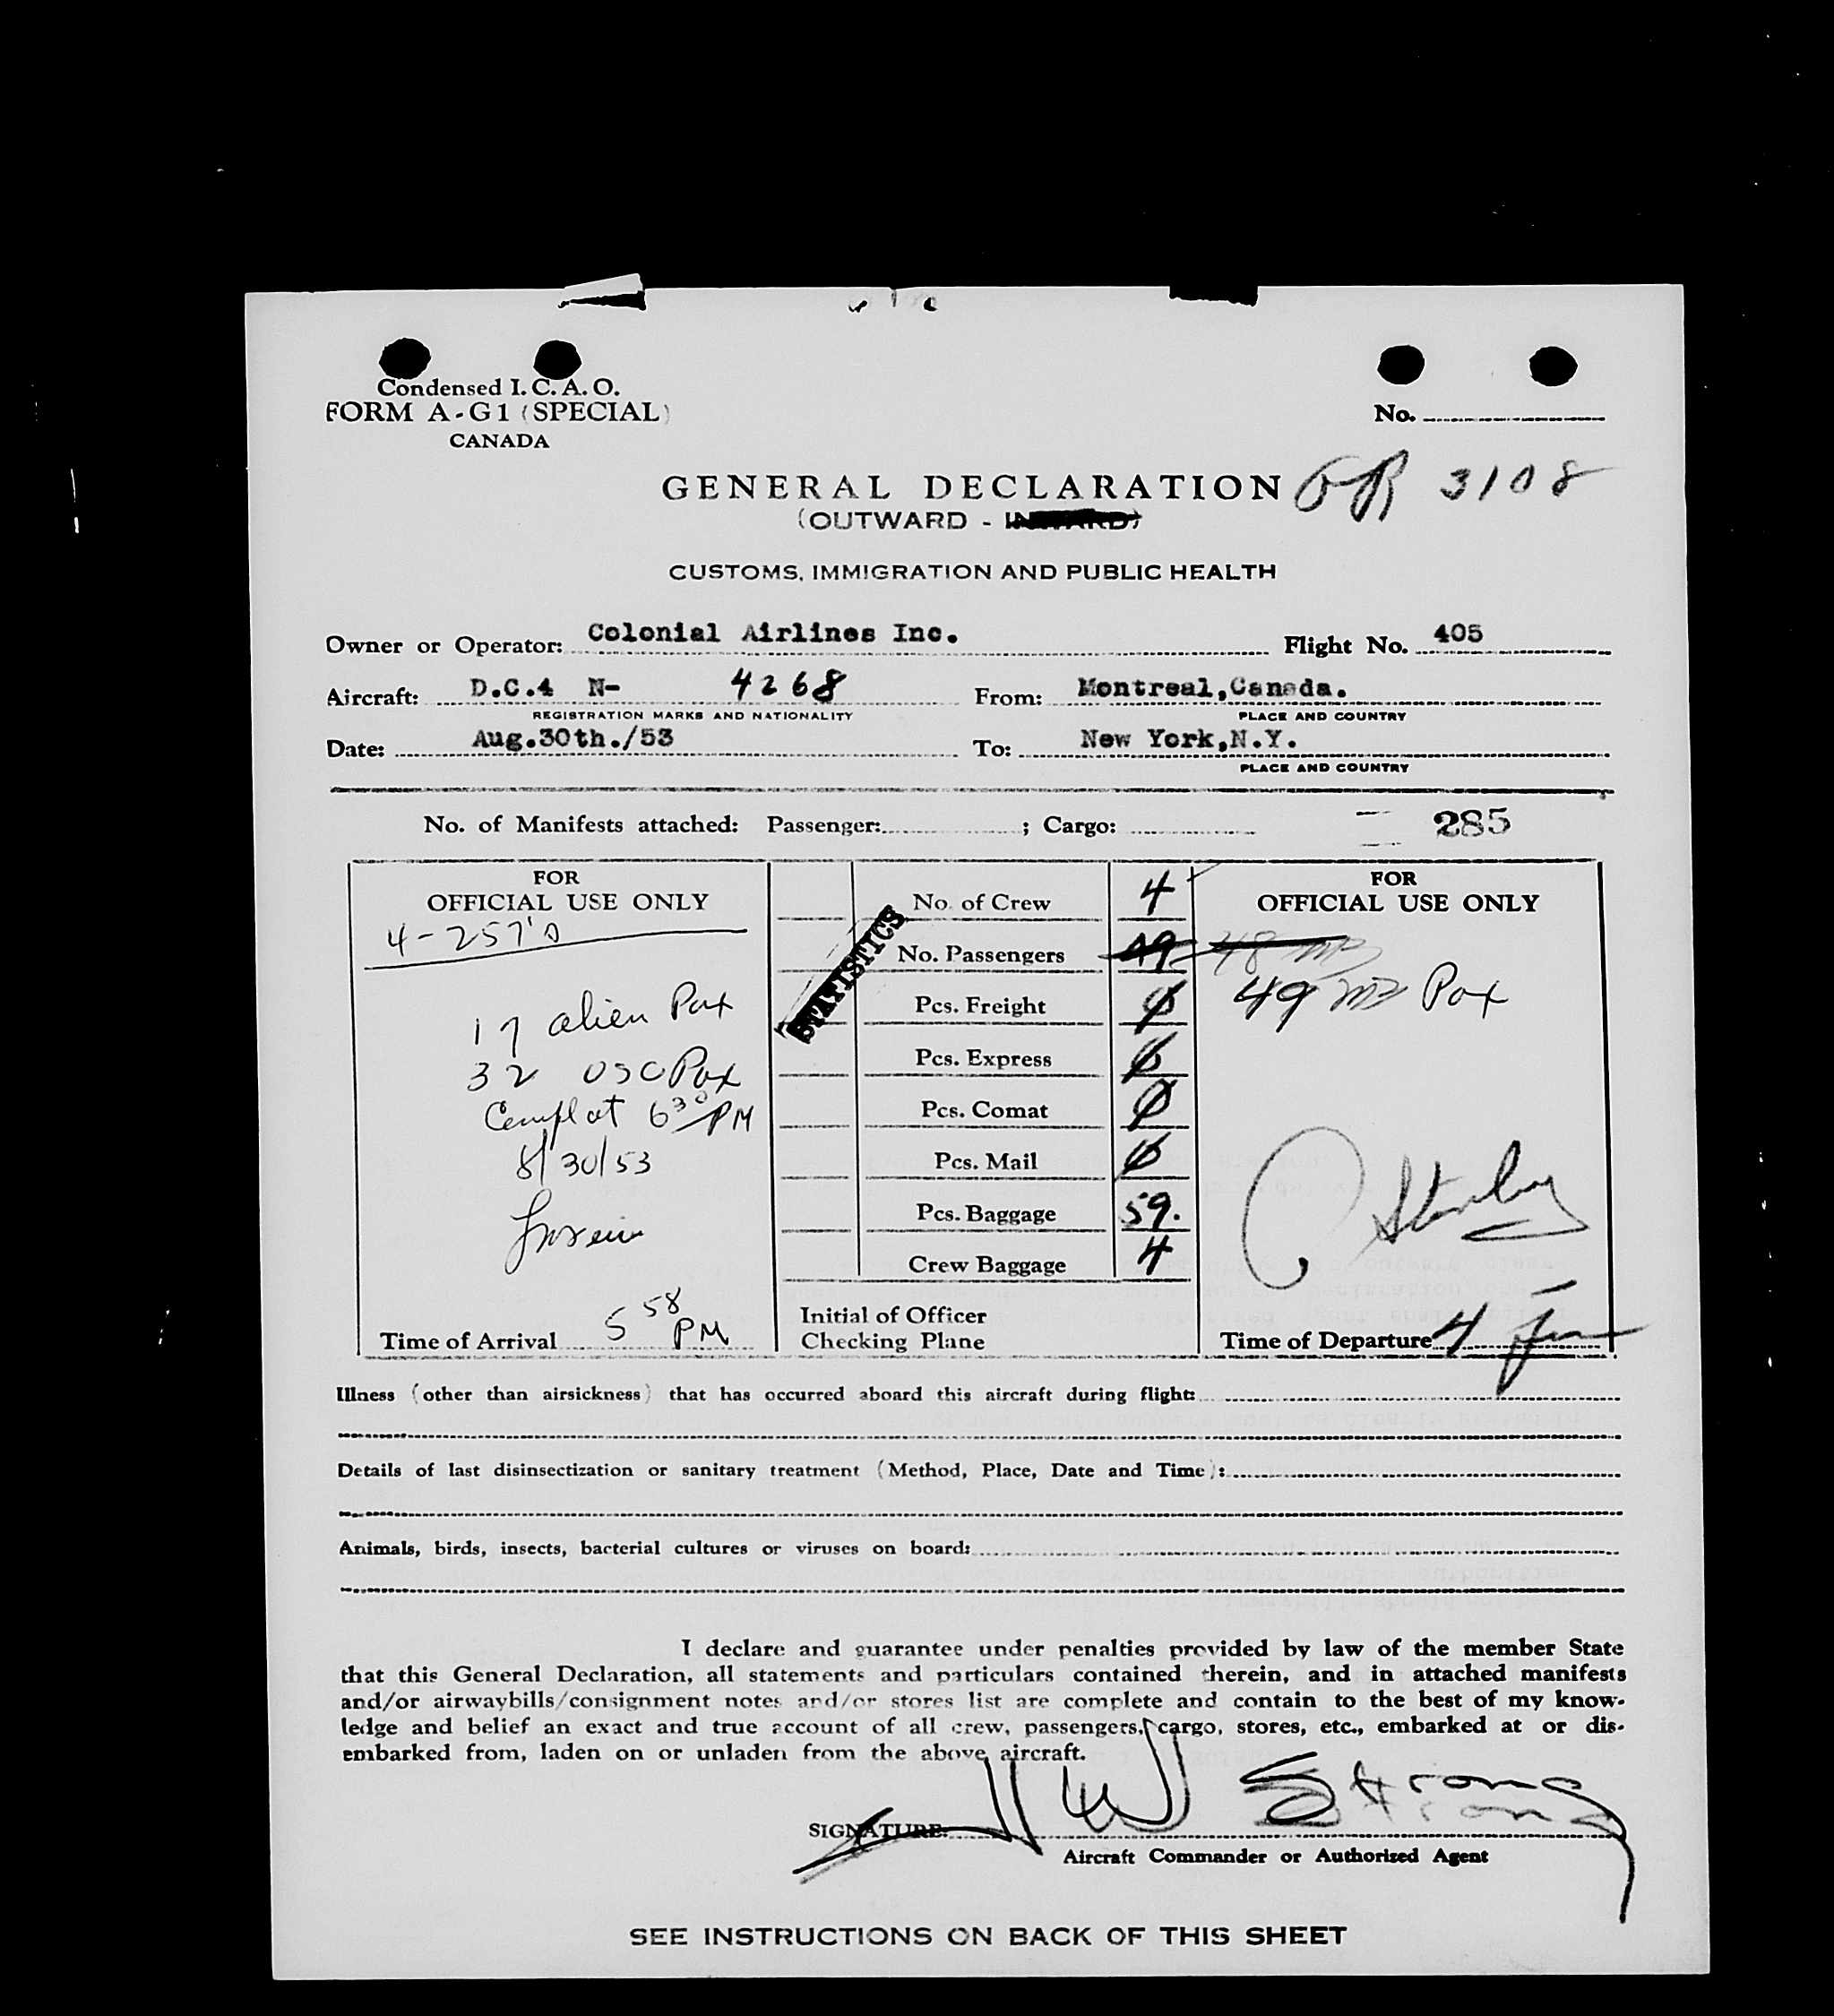 Condensed I.C.A.O.
FORM A-G1 (SPECIAL)
CANADA
No.
GENERAL DECLARATION
3108
(OUTWARD -
CUSTOMS, IMMIGRATION AND PUBLIC HEALTH
Owner or Operator: Colonial Airlines Inc. Flight No. 405
Aircraft: D.C.4 N- 4268 From: Montreal,Canada.
REGISTRATION MARKS AND NATIONALITY PLACE AND COUNTRY
Date: Aug.30th./53 To: New York,N.Y.
PLACE AND COUNTRY
No. of Manifests attached: Passenger: ; Cargo: 285
FOR
OFFICIAL USE ONLY
4-257's
17 alien Pax
32 USC Pax
Compl at 6 30 PM
8/30/53
Time of Arrival 5 58 PM
STATISTICS
No. of Crew 4
No. Passengers 49
Pcs. Freight 0
Pcs. Express 0
Pcs. Comat 0
Pcs. Mail 0
Pcs. Baggage 59.
Crew Baggage 4
Initial of Officer
Checking Plane
FOR
OFFICIAL USE ONLY
48
49 Pax
Time of Departure 4
Illness (other than airsickness) that has occurred aboard this aircraft during flight:
Details of last disinsectization or sanitary treatment (Method, Place, Date and Time):
Animals, birds, insects, bacterial cultures or viruses on board:
I declare and guarantee under penalties provided by law of the member State
that this General Declaration, all statements and particulars contained therein, and in attached manifests
and/or airwaybills/consignment notes and/or stores list are complete and contain to the best of my know-
ledge and belief an exact and true account of all crew, passengers, cargo, stores, etc., embarked at or dis-
embarked from, laden on or unladen from the above aircraft.
SIGNATURE: W Strong
Aircraft Commander or Authorized Agent
SEE INSTRUCTIONS ON BACK OF THIS SHEET